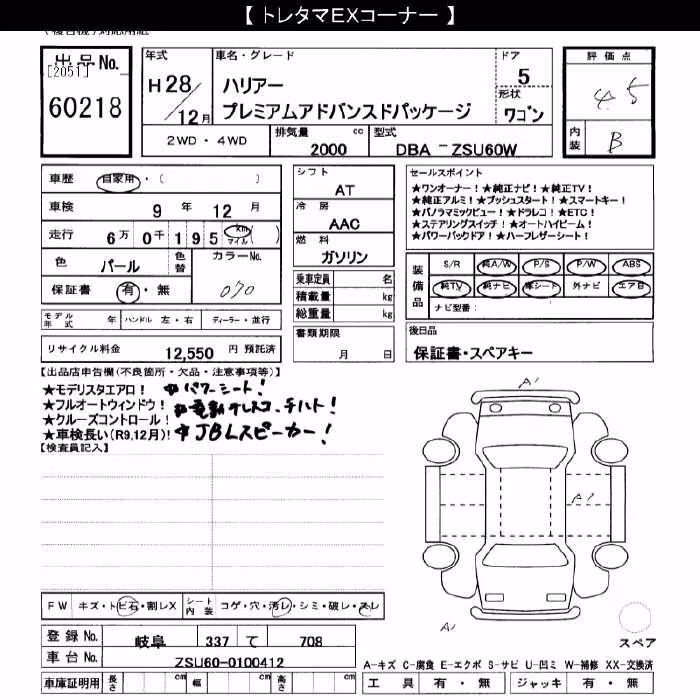 【 トレタマEXコーナー 】
出品No.
[2051]
60218
年式
H28/12月
車名・グレード
ハリアー
プレミアムアドバンスドパッケージ
ドア
5
形状
ワゴン
2WD ・ 4WD
排気量 cc
2000
型式
DBA -ZSU60W
評価点
4.5
内装
B
車歴 自家用・( )
車検 9 年 12 月
走行 6万 0千195 km マイル ( )
色 パール
色替
カラーNo.
070
保証書 有・無
モデル年式 年 ハンドル 左・右 ディーラー・並行
リサイクル料金 12,550 円 預託済
シフト
AT
冷房
AAC
燃料
ガソリン
乗車定員 名
積載量 kg
総重量 kg
書類期限
月 日
セールスポイント
★ワンオーナー！★純正ナビ！★純正TV！
★純正アルミ！★プッシュスタート！★スマートキー！
★パノラマミックビュー！★ドラレコ！★ETC！
★ステアリングスイッチ！★オートハイビーム！
★パワーバックドア！★ハーフレザーシート！
装備品
S/R 純A/W P/S P/W ABS
純TV 純ナビ 革シート 外ナビ エアB
ナビ型番：
後日品
保証書・スペアキー
【出品店申告欄(不良箇所・欠品・注意事項等)】
★モデリスタエアロ！ ★パワーシート！
★フルオートウィンドウ！ ★電動テレスコ、チルト！
★クルーズコントロール！
★車検長い(R9,12月)! ★JBLスピーカー！
【検査員記入】
A1
A1
A1
FW キズ・トビ石・割レX
シート内装 コゲ・穴・汚レ・シミ・破レ・スレ
登録No. 岐阜 337 て 708
車台No. ZSU60-0100412
車庫証明用 長さ cm 幅 cm 高さ cm
スペア
A-キズ C-腐食 E-エクボ S-サビ U-凹ミ W-補修 XX-交換済
工具 有・無 ジャッキ 有・無